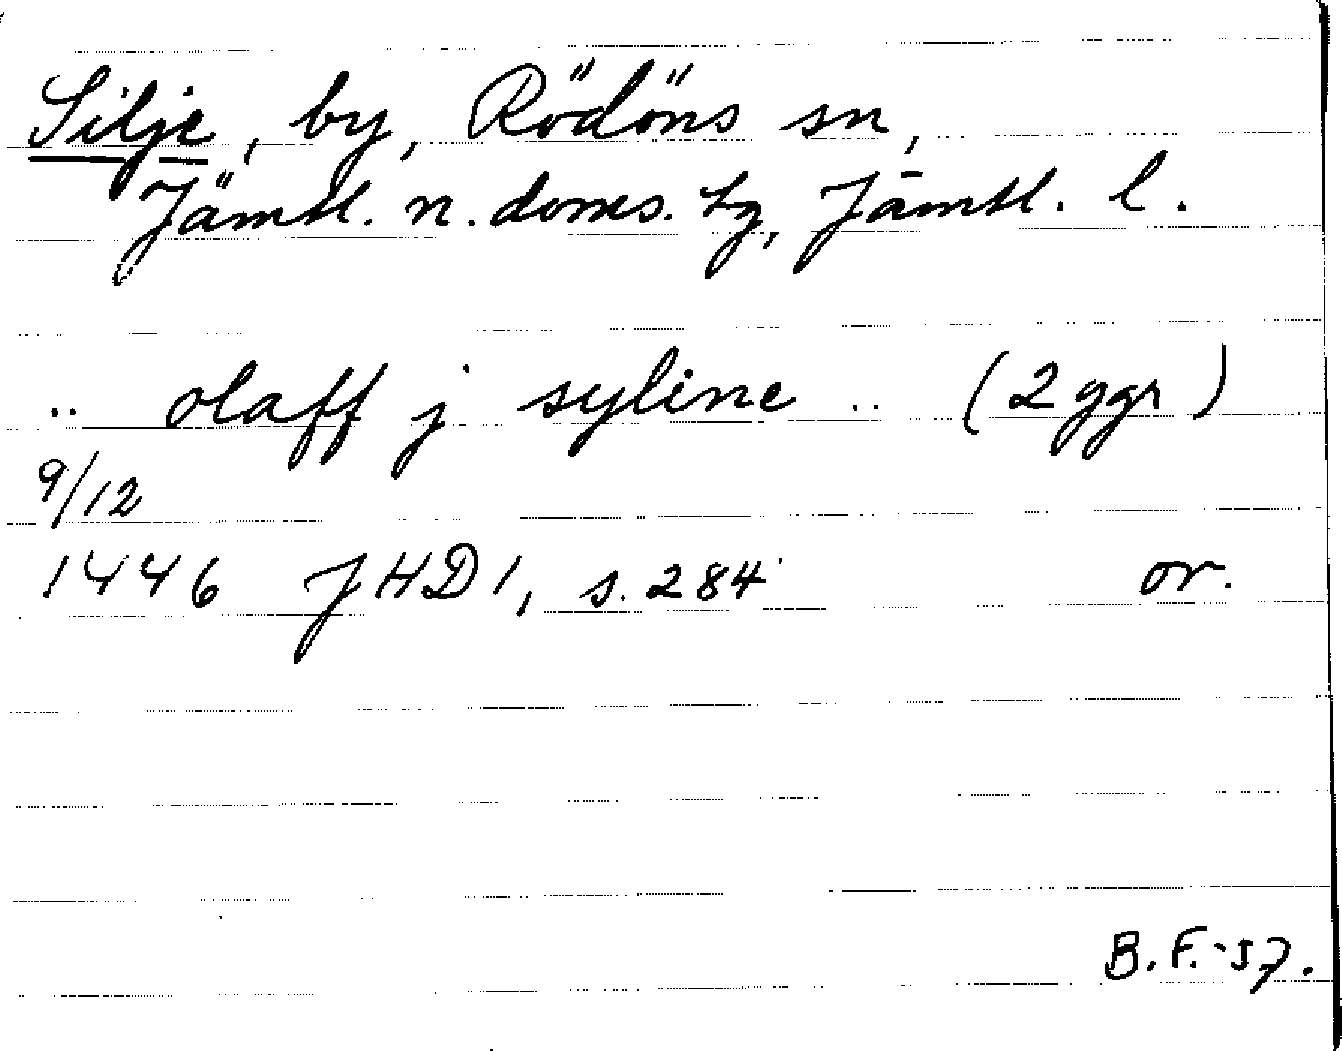 Silje, by, Rödöns sn,
Jämtl. n. doms. tg, Jämtl. l.
.. olaff j syline .. (2 ggr)
9/12
1446 JHD 1, s. 284 or.
B.F.-57.